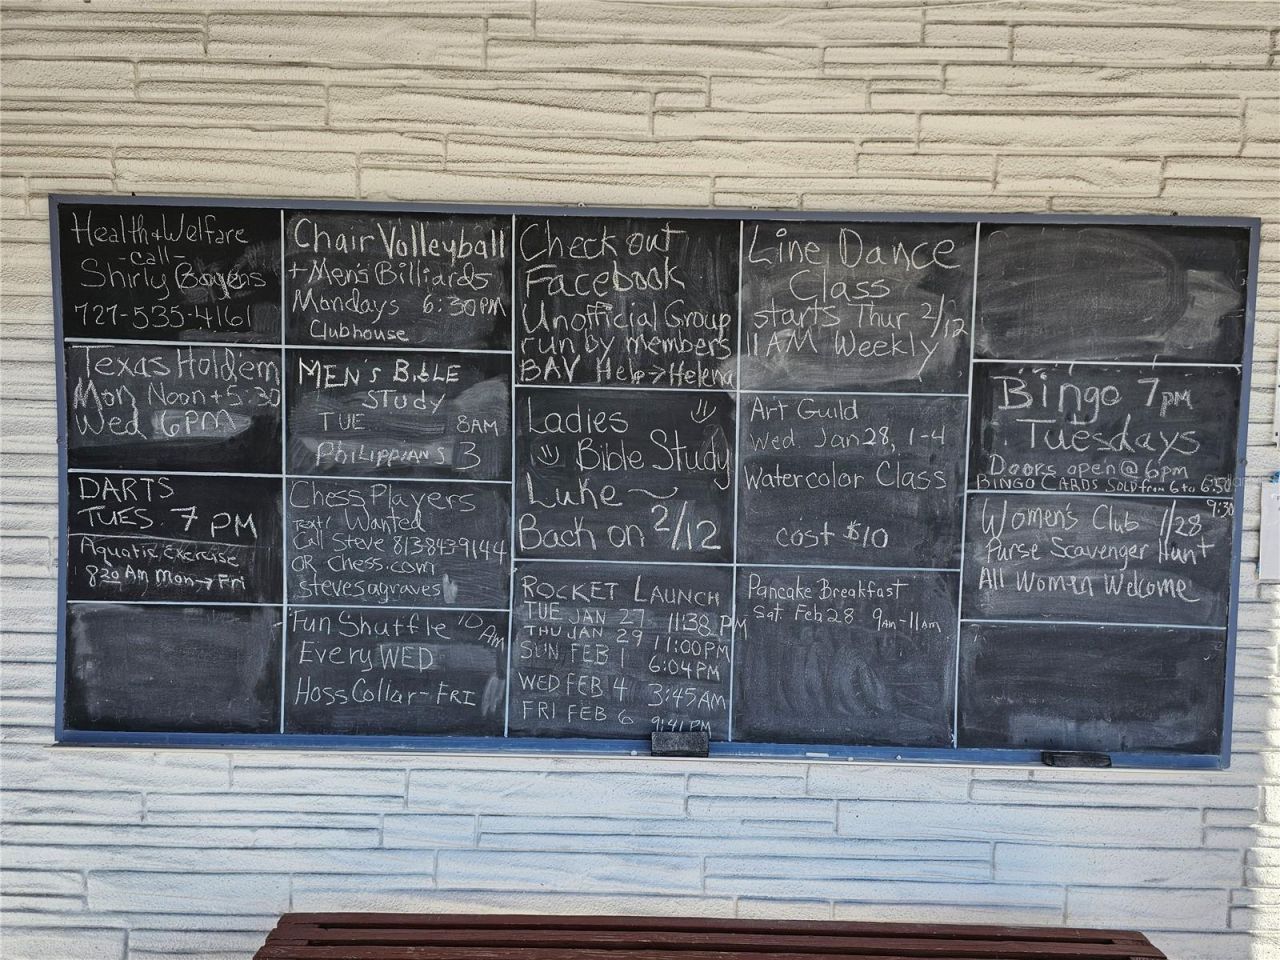 Health + Welfare
- call -
Shirly Bogens
727-535-4161
Texas Hold'em
Mon Noon + 5:30
Wed 6PM
DARTS
TUES. 7 PM
Aquatic exercise
8:30 AM Mon → Fri
Chair Volleyball
+ Men's Billiards
Mondays 6:30PM
Clubhouse
MEN's BiBLE
STUDY
TUE 8AM
PHILIPPIANS 3
Chess Players
Wanted
Text/
Call Steve 813-843-9144
OR Chess.com
stevesagraves1
Fun Shuffle 10 Am
Every WED
Hoss Collar - FRI
Check out
Facebook
Unofficial Group
run by members
BAV Help → Helena
Ladies
Bible Study
Luke
Back on 2/12
ROCKET LAUNCH
TUE JAN 27 11:38 PM
THU JAN 29 11:00PM
SUN, FEB 1 6:04PM
WED FEB 4 3:45AM
FRI FEB 6 9:41 PM
Line Dance
Class
starts Thur 2/12
11AM Weekly
Art Guild
Wed. Jan 28, 1-4
Watercolor Class
cost $10
Pancake Breakfast
Sat. Feb 28 9AM-11AM
Bingo 7PM
Tuesdays
Doors open @ 6pm
BINGO CARDS SOLD from 6 to 6:50
9:30
Women's Club 1/28
Purse Scavenger Hunt
All Women Welcome